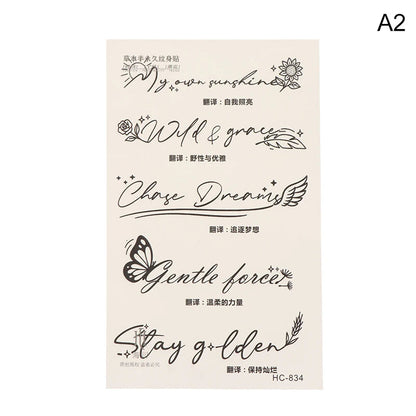 A2
草本半永久纹身贴
My own sunshine
翻译：自我照亮
Wild & grace
翻译：野性与优雅
Chase Dreams
翻译：追逐梦想
Gentle force
翻译：温柔的力量
Stay golden
原创版权 盗者必究
翻译：保持灿烂
HC-834